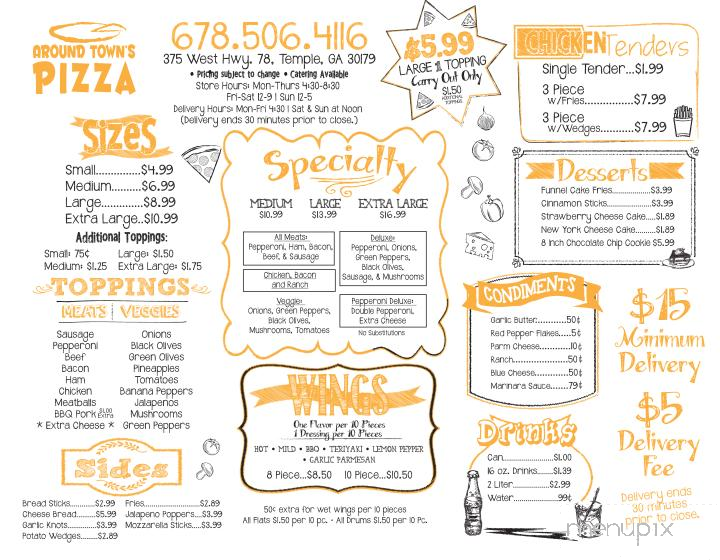 AROUND TOWN'S
PIZZA
678.506.4116
375 West Hwy. 78, Temple, GA 30179
• Pricing subject to change • Catering Available
Store Hours: Mon-Thurs 4:30-8:30
Fri-Sat 12-9 | Sun 12-5
Delivery Hours: Mon-Fri 4:30 | Sat & Sun at Noon
(Delivery ends 30 minutes prior to close.)
$5.99
LARGE 1 TOPPING
Carry Out Only
$1.50
ADDITIONAL
TOPPINGS
CHICKEN Tenders
Single Tender...$1.99
3 Piece
w/Fries............$7.99
3 Piece
w/Wedges.........$7.99
SIZES
Small..............$4.99
Medium.........$6.99
Large.............$8.99
Extra Large..$10.99
Additional Toppings:
Small: 75¢ Large: $1.50
Medium: $1.25 Extra Large: $1.75
TOPPINGS
MEATS VEGGIES
Sausage Onions
Pepperoni Black Olives
Beef Green Olives
Bacon Pineapples
Ham Tomatoes
Chicken Banana Peppers
Meatballs Jalapenos
BBQ Pork $1.00 Extra Mushrooms
* Extra Cheese * Green Peppers
Sides
Bread Sticks..........$2.99 Fries......................$2.89
Cheese Bread.......$5.99 Jalapeno Poppers...$3.99
Garlic Knots..........$3.99 Mozzarella Sticks....$3.99
Potato Wedges.......$2.89
Specialty
MEDIUM LARGE EXTRA LARGE
$10.99 $13.99 $16.99
All Meats:
Pepperoni, Ham, Bacon,
Beef, & Sausage
Chicken, Bacon
and Ranch
Veggie:
Onions, Green Peppers,
Black Olives,
Mushrooms, Tomatoes
Deluxe:
Pepperoni, Onions,
Green Peppers,
Black Olives,
Sausage, & Mushrooms
Pepperoni Deluxe:
Double Pepperoni,
Extra Cheese
No Substitutions
WINGS
One Flavor per 10 Pieces
1 Dressing per 10 Pieces
HOT • MILD • BBQ • TERIYAKI • LEMON PEPPER
• GARLIC PARMESAN
8 Piece...$8.50 10 Piece...$10.50
50¢ extra for wet wings per 10 pieces
All Flats $1.50 per 10 pc. • All Drums $1.50 per 10 Pc.
Desserts
Funnel Cake Fries..............$3.99
Cinnamon Sticks................$3.99
Strawberry Cheese Cake....$1.89
New York Cheese Cake......$1.89
8 Inch Chocolate Chip Cookie $5.99
CONDIMENTS
Garlic Butter............50¢
Red Pepper Flakes.....5¢
Parm Cheese............10¢
Ranch.......................50¢
Blue Cheese..............50¢
Marinara Sauce........79¢
Drinks
Can.......................$1.00
16 oz. Drinks.........$1.39
2 Liter...................$2.99
Water....................99¢
$15
Minimum
Delivery
$5
Delivery
Fee
Delivery ends
30 minutes
prior to close.
menupix